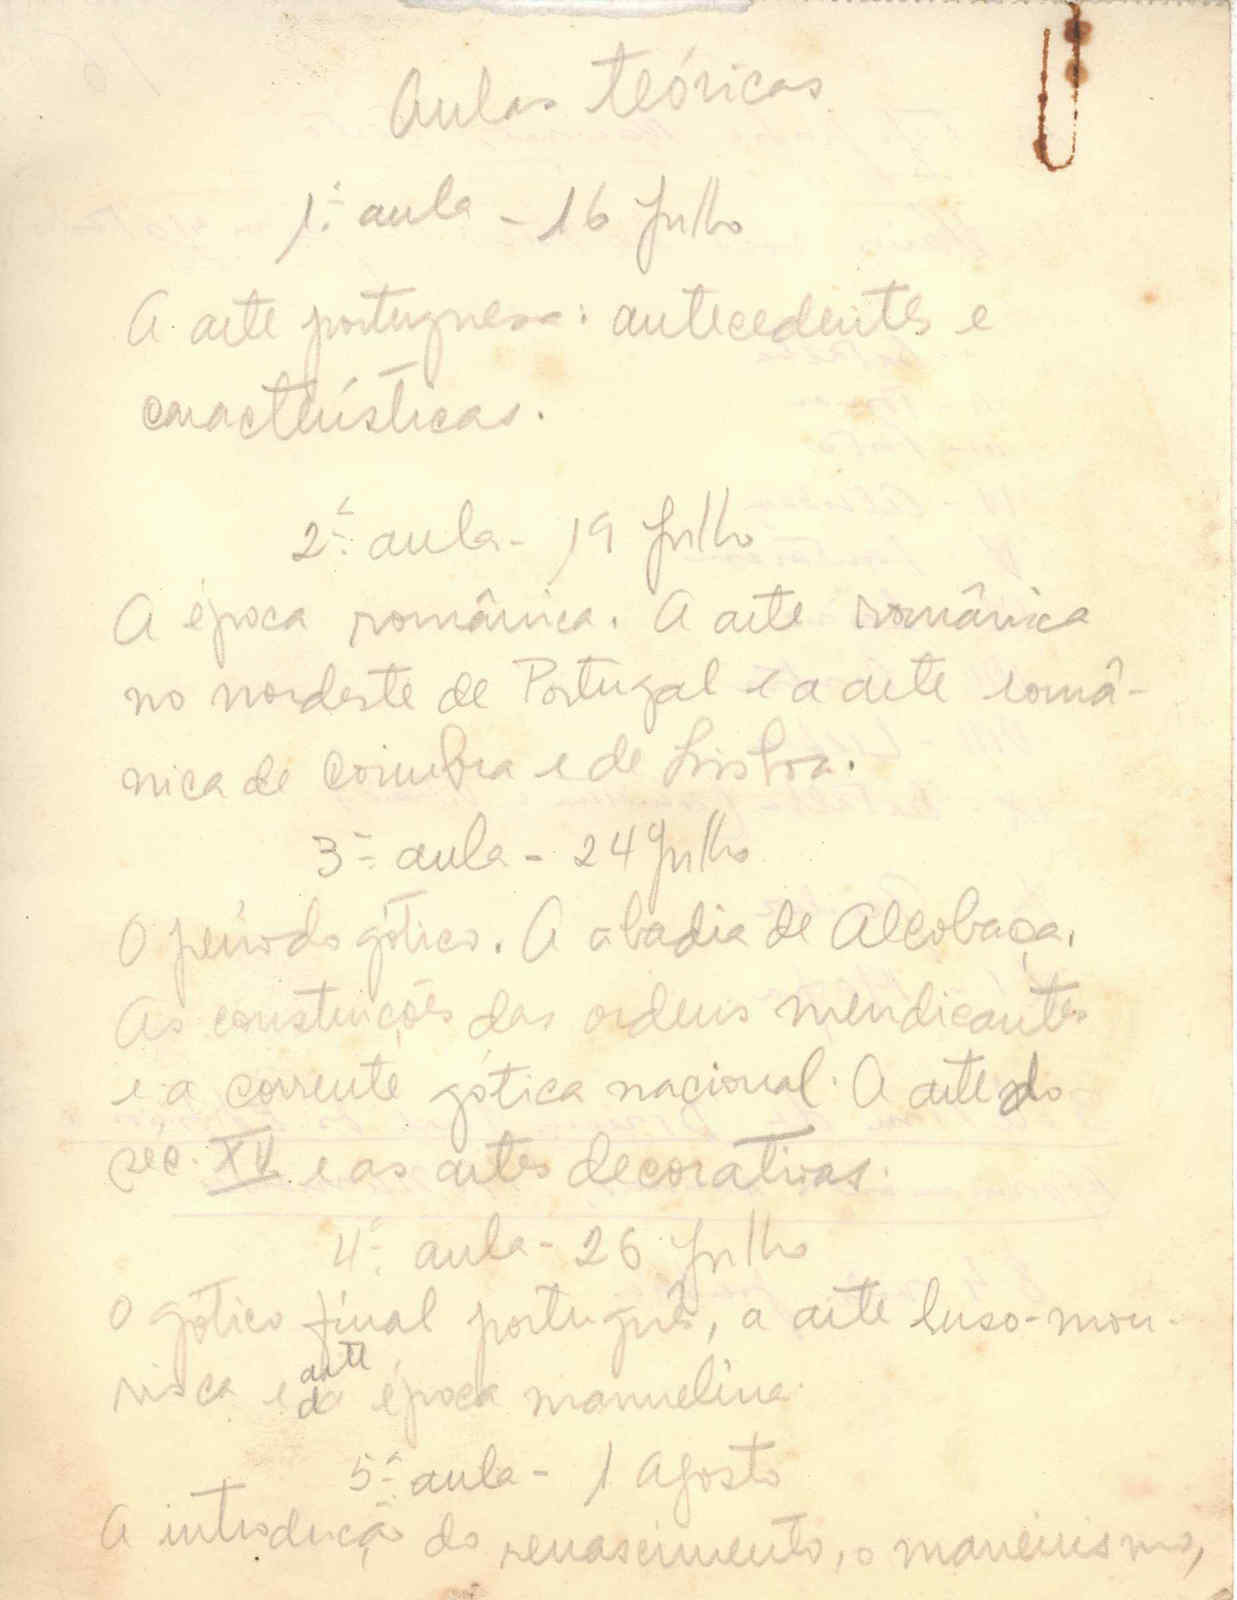 Aulas teóricas
1.ª aula - 16 Julho
A arte portuguesa: antecedentes e
características.
2.ª aula - 19 Julho
A época românica. A arte românica
no nordeste de Portugal e a arte romã-
nica de Coimbra e de Lisboa.
3.ª aula - 24 Julho
O período gótico. A abadia de Alcobaça.
As construções das ordens mendicantes
e a corrente gótica nacional. A arte do
séc. XV e as artes decorativas.
4.ª aula - 26 Julho
O gótico final português, a arte luso-mou-
arte
risca e da época manuelina.
5.ª aula - 1 Agosto
A introdução do renascimento, o maneirismo,